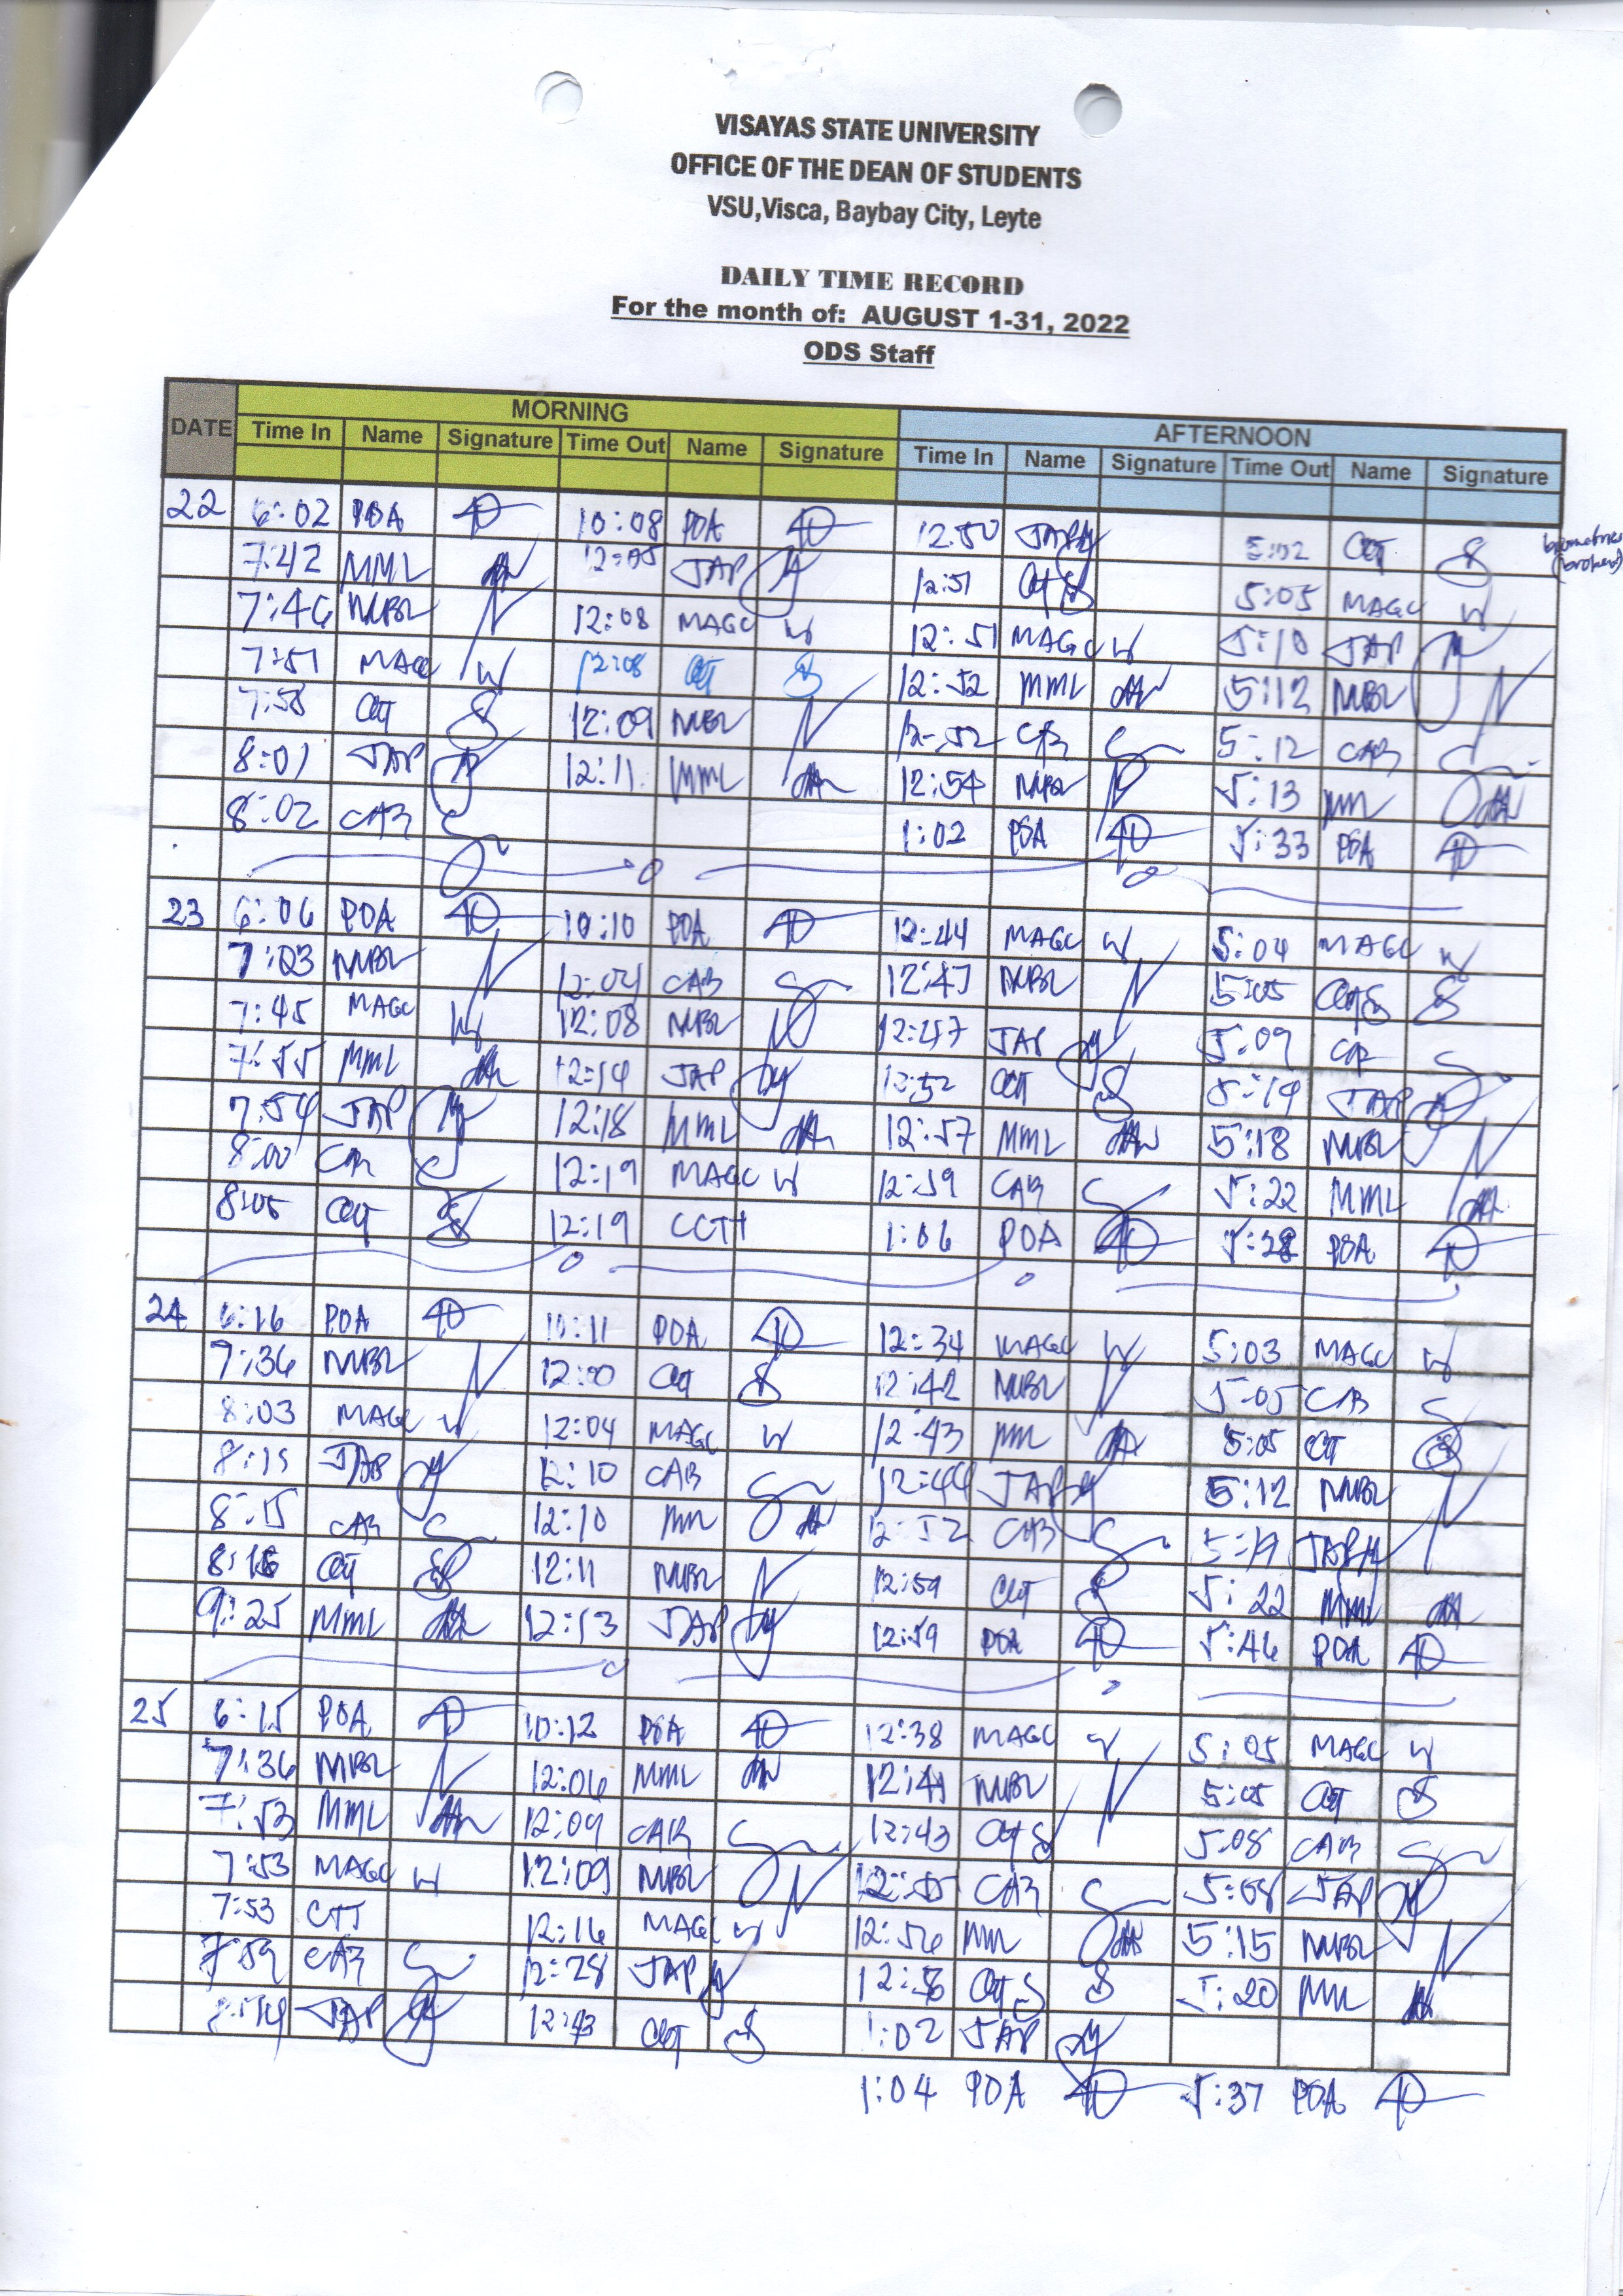 VISAYAS STATE UNIVERSITY
OFFICE OF THE DEAN OF STUDENTS
VSU,Visca, Baybay City, Leyte
DAILY TIME RECORD
For the month of: AUGUST 1-31, 2022
ODS Staff
DATE MORNING AFTERNOON
Time In Name Signature Time Out Name Signature Time In Name Signature Time Out Name Signature
22 6:02 POA 10:08 POA 12:50 JAP 5:02 CCT
7:42 MML 12:05 JAP 12:51 CCT 5:05 MAGC
7:46 NUBL 12:08 MAGC 12:51 MAGC 5:10 JAP
7:51 MAGC 12:08 CCT 12:52 MML 5:12 NUBL
7:58 CCT 12:09 NUBL 12:52 CAB 5:12 CAB
8:01 JAP 12:11 MML 12:54 NUBL 5:13 MML
8:02 CAB 1:02 POA 5:33 POA
23 6:06 POA 10:10 POA 12:44 MAGC 5:04 MAGC
7:03 NUBL 12:04 CAB 12:47 NUBL 5:05 CCT
7:45 MAGC 12:08 NUBL 12:47 JAP 5:09 CAB
7:55 MML 12:14 JAP 12:52 CCT 5:14 JAP
7:54 JAP 12:18 MML 12:57 MML 5:18 NUBL
8:00 CAB 12:19 MAGC 12:59 CAB 5:22 MML
8:05 CCT 12:19 CCTT 1:06 POA 5:28 POA
24 6:16 POA 10:11 POA 12:34 MAGC 5:03 MAGC
7:36 NUBL 12:00 CCT 12:42 NUBL 5:05 CAB
8:03 MAGC 12:04 MAGC 12:43 MML 5:05 CCT
8:15 JAP 12:10 CAB 12:44 JAP 5:12 NUBL
8:15 CAB 12:10 MML 12:52 CAB 5:19 JAP
8:16 CCT 12:11 NUBL 12:59 CCT 5:22 MML
9:25 MML 12:13 JAP 12:59 POA 5:46 POA
25 6:15 POA 10:12 POA 12:38 MAGC 5:05 MAGC
7:36 NUBL 12:06 MML 12:41 NUBL 5:05 CCT
7:53 MML 12:09 CAB 12:43 CCT 5:08 CAB
7:53 MAGC 12:09 NUBL 12:55 CAB 5:08 JAP
7:53 CTT 12:16 MAGC 12:56 MML 5:15 NUBL
7:59 CAB 12:28 JAP 12:56 CCT 5:20 MML
JAP 12:43 CCT 1:02 JAP
1:04 POA 5:37 POA